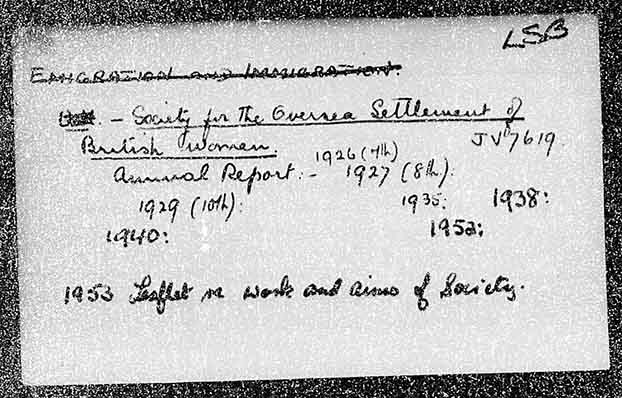 LSB
EMIGRATION AND IMMIGRATION.
— Society for the Oversea Settlement of
British Women.
JV 7619.
Annual Report:- 1926 (7th) 1927 (8th):
1929 (10th): 1935: 1938:
1940: 1952:
1953 Leaflet re work and aims of Society.